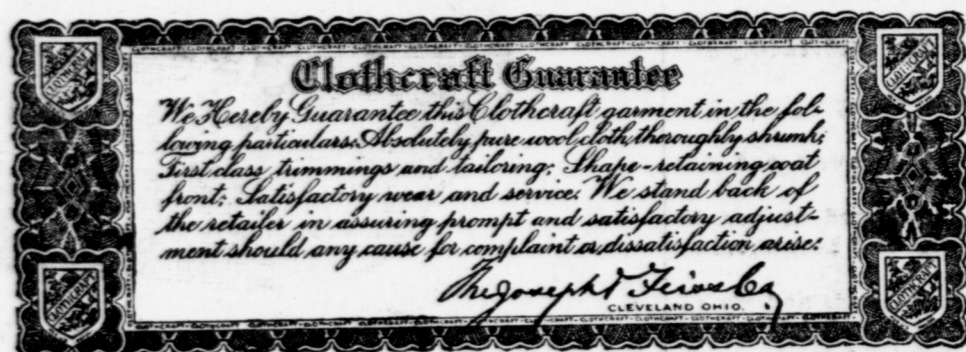 Clothcraft Guarantee
We Hereby Guarantee this Clothcraft garment in the fol-
lowing particulars: Absolutely pure wool cloth, thoroughly shrunk;
First class trimmings and tailoring; Shape-retaining coat
front; Satisfactory wear and service. We stand back of
the retailer in assuring prompt and satisfactory adjust-
ment should any cause for complaint or dissatisfaction arise:
The Joseph & Feiss Co
CLEVELAND OHIO.
CLOTHCRAFT
CLOTHCRAFT
CLOTHCRAFT
CLOTHCRAFT